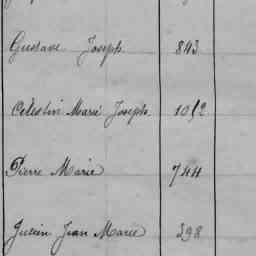 Gustave Joseph 843
Célestin Marie Joseph 1012
Pierre Marie 744
Julien Jean Marie 398